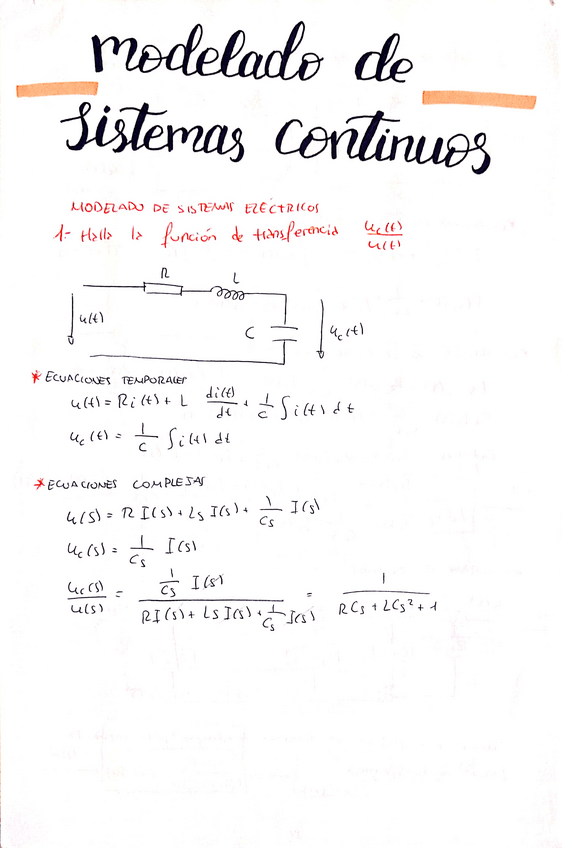 modelado de
sistemas continuos
MODELADO DE SISTEMAS ELÉCTRICOS
1- Halla la función de transferencia u_c(t)/u(t)
R L
u(t) C u_c(t)
* ECUACIONES TEMPORALES
u(t) = Ri(t) + L di(t)/dt + 1/C ∫i(t) dt
u_c(t) = 1/C ∫i(t) dt
* ECUACIONES COMPLEJAS
u(s) = R I(s) + Ls I(s) + 1/Cs I(s)
u_c(s) = 1/Cs I(s)
u_c(s)/u(s) = (1/Cs I(s))/(RI(s) + LS I(s) + 1/Cs I(s)) = 1/(RCs + LCs² + 1)